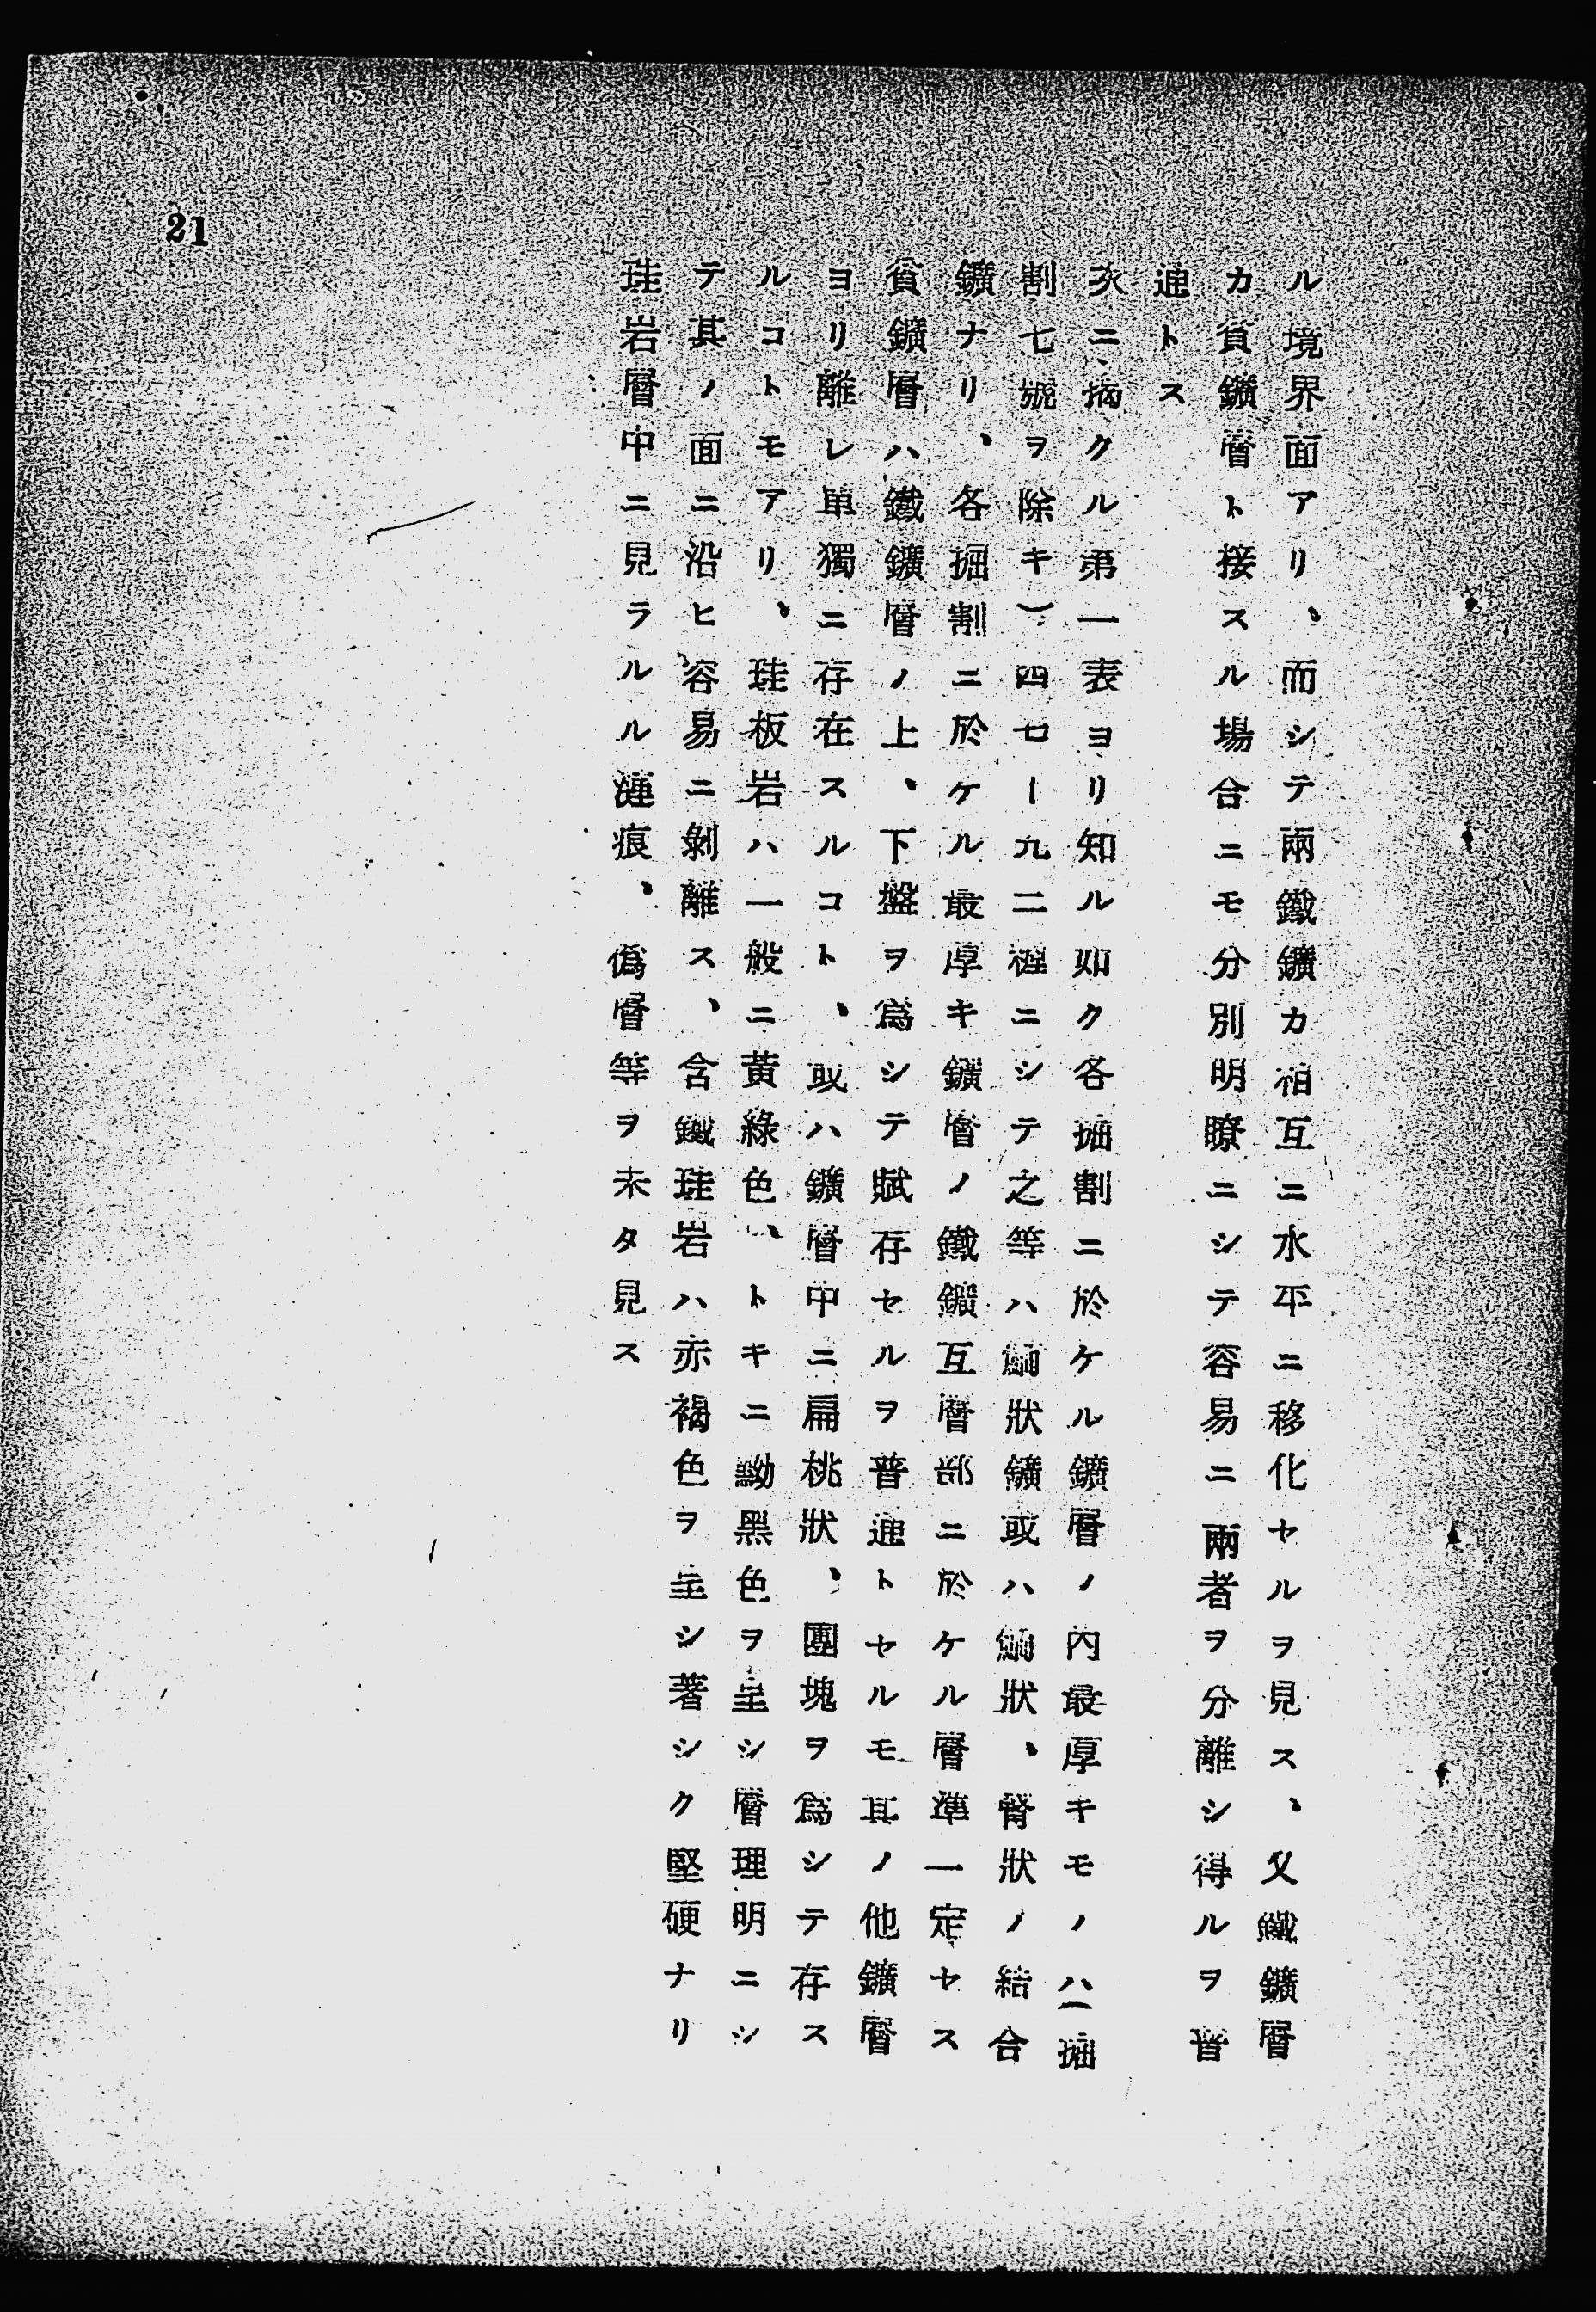 21
ル境界面アリ、而シテ兩鐵鑛カ相互ニ水平ニ移化セルヲ見ス、又鐵鑛層
カ貧鑛層ト接スル場合ニモ分別明瞭ニシテ容易ニ兩者ヲ分離シ得ルヲ普
通トス
次ニ、掲クル第一表ヨリ知ル如ク各掘割ニ於ケル鑛層ノ內最厚キモノハ(掘
割七號ヲ除キ)四七ー九二糎ニシテ之等ハ鮞狀鑛或ハ鮞狀、腎狀ノ結合
鑛ナリ、各掘割ニ於ケル最厚キ鑛層ノ鐵鑛互層部ニ於ケル層準一定セス
貧鑛層ハ鐵鑛層ノ上、下盤ヲ爲シテ賦存セルヲ普通トセルモ其ノ他鑛層
ヨリ離レ単獨ニ存在スルコト、或ハ鑛層中ニ扁桃狀、團塊ヲ爲シテ存ス
ルコトモアリ、珪板岩ハ一般ニ黃綠色、トキニ黝黑色ヲ呈シ層理明ニシ
テ其ノ面ニ沿ヒ容易ニ剝離ス、含鐵珪岩ハ赤褐色ヲ呈シ著シク堅硬ナリ
珪岩層中ニ見ラルル漣痕、僞層等ヲ未タ見ス